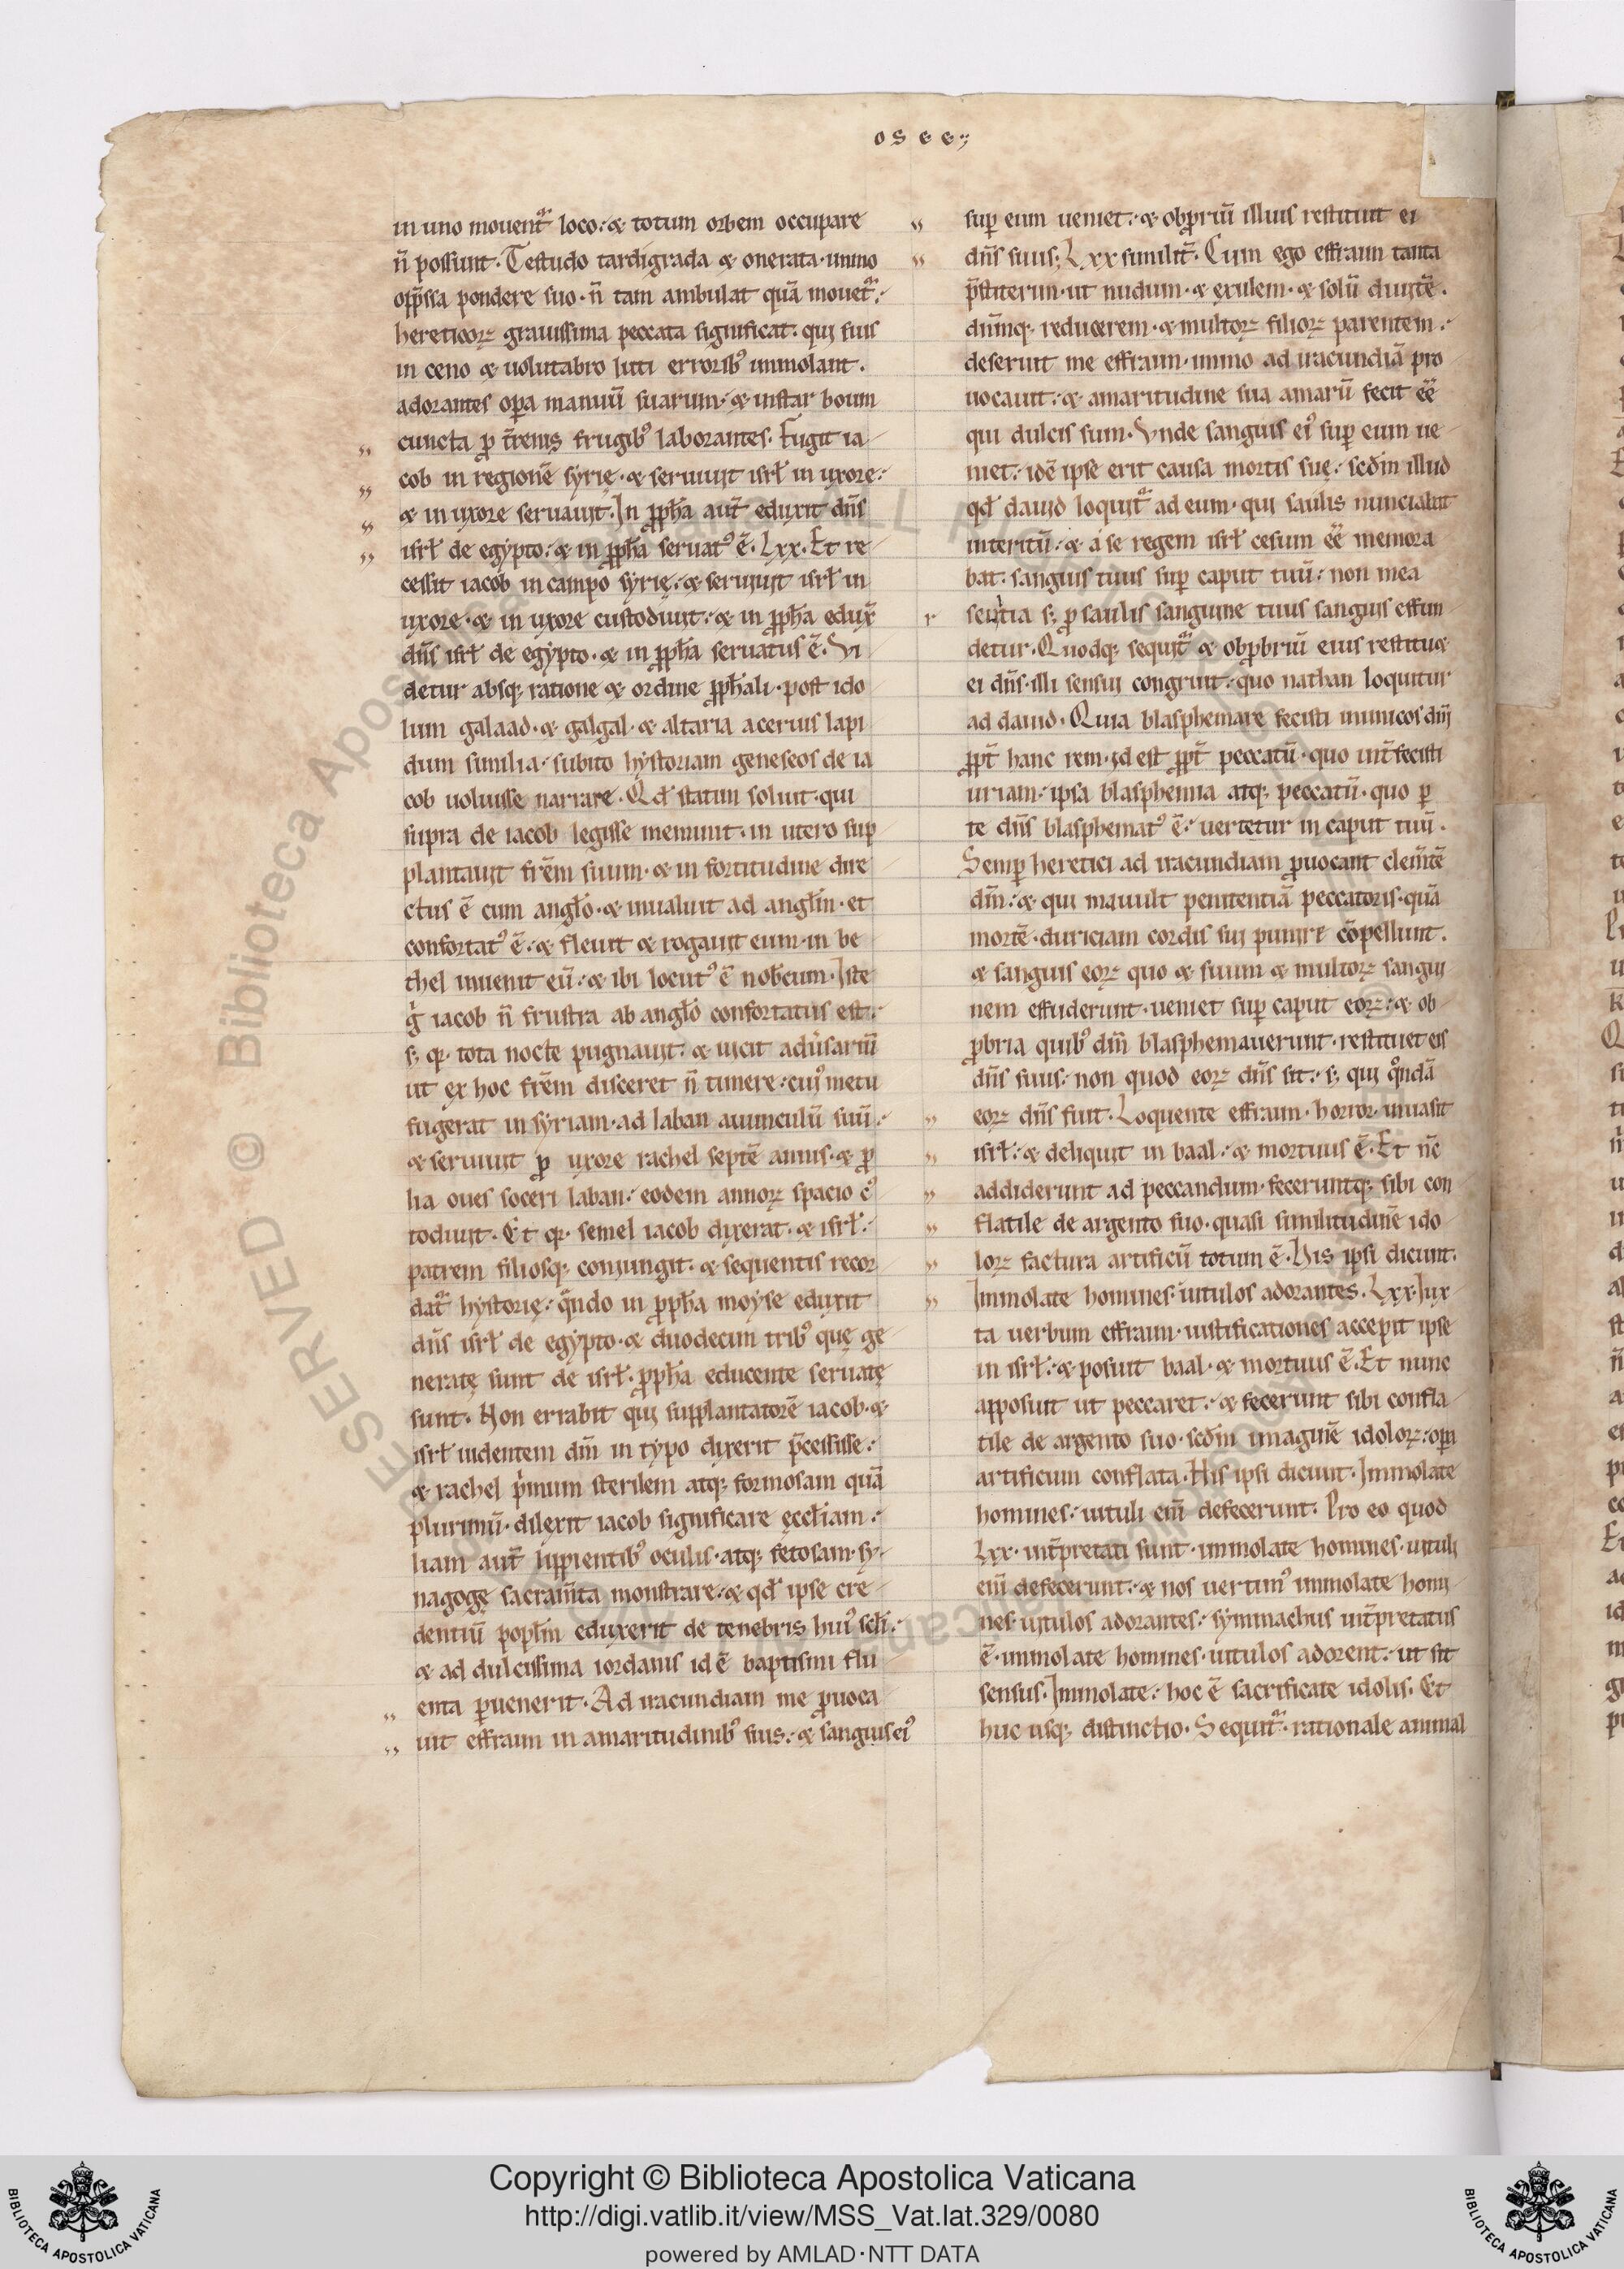 osee;
in uno mouent᷑ loco: & totum orbem occupare
n̄ possunt. Testudo tardigrada & onerata. immo
opp̄ssa pondere suo. n̄ tam ambulat quā mouet᷑:
hereticoꝝ grauissima peccata significat. qui suis
in ceno & uolutabro luti erroribꝰ immolant.
adorantes oꝑa manuū suarum. & instar boum
cuncta ꝓ t̄renis frugibꝰ laborantes. Fugit ia
cob in regionē syrię. & seruiuit isrł in uxore:
& in uxore seruauit. In ꝓph̄a aut̄ eduxit dn̄s
isrł de egypto: & in ꝓph̄a seruatꝰ ē. Lxx. Et re
cessit iacob in campo syrię: & seruiuit isrł in
uxore. & in uxore custodiuit: & in ꝓph̄a edux̄
dn̄s isrł de egypto. & in ꝓph̄a seruatus ē. Vi
detur absq; ratione & ordine ꝓph̄ali. post ido
lum galaad. & galgal. & altaria aceruis lapi
dum similia. subito hystoriam geneseos de ia
cob uoluisse narrare. Qđ statim soluit. qui
supra de iacob legisse meminit. in utero sup
plantauit frēm suum. & in fortitudine dire
ctus ē cum angło. & inualuit ad angłm. et
confortatꝰ ē. & fleuit & rogauit eum. in be
thel inuenit eū: & ibi locutꝰ ē nob̄cum. Iste
g̊ iacob n̄ frustra ab angło confortatus est:
s; qꝛ tota nocte pugnauit. & uicit adu̓sariū
ut ex hoc frēm disceret n̄ timere: cuiꝰ metu
fugerat in syriam. ad laban auunculū suū:
& seruiuit ꝓ uxore rachel septē annis. & ꝓ
lia oues soceri laban: eodem annoꝝ spacio cꝰ
todiuit. Et qꝛ semel iacob dixerat. & isrł:
patrem filiosq; coniungit. & sequentis recor
dat᷑ hystorię: qn̄do in ꝓph̄a moyse eduxit
dn̄s isrł de egypto. & duodecim tribꝰ quę ge
neratę sunt de isrł. ꝓph̄a educente seruatę
sunt. Non errabit qui supplantatorē iacob. &
isrł uidentem dm̄ in typo dixerit p̄cessisse:
& rachel pͥmum sterilem atq; formosam quā
plurimū. dilexit iacob significare ęcclīam:
liam aut̄ lippientibꝰ oculis. atq; fetosam. sy
nagogę sacram̄ta monstrare: & qđ ipse cre
dentiū popłm eduxerit de tenebris huiꝰ sc̄li:
& ad dulcissima iordanis id ē baptismi flu
enta ꝑuenerit. Ad iracundiam me ꝓuoca
uit effraim in amaritudinibꝰ suis: & sanguis eiꝰ
suꝑ eum ueniet: & obꝓbriū illius restituit ei
dn̄s suus; Lxx similit̄. Cum ego effraim tanta
p̄stiterim. ut nudum. & exulem. & solū diuitē.
dn̄mq; reducerem. & multoꝝ filioꝝ parentem:
deseruit me effraim. immo ad iracundiā pro
uocauit: & amaritudine sua amarū fecit eē
qui dulcis sum. Vnde sanguis eiꝰ suꝑ eum ue
niet: idē ipse erit causa mortis suę: scđm illud
qđ dauid loquit᷑ ad eum. qui saulis nunciabat
interitū: & a se regem isrł cesum eē memora
bat. sanguis tuus suꝑ caput tuū: non mea
sen̄tia s; ꝓ saulis sanguine tuus sanguis effun
detur. Quodq; sequit᷑ & obꝓbriū eius restitu&
ei dn̄s. illi sensui congruit: quo nathan loquitur
ad dauid. Quia blasphemare fecisti inimicos dn̄i
ꝓpt̄ hanc rem. id est ꝓpt̄ peccatū. quo int̄fecisti
uriam: ipsa blasphemia atq; peccatū. quo ꝑ
te dn̄s blasphematꝰ ē: uertetur in caput tuū.
Semꝑ heretici ad iracundiam ꝓuocant clem̄tē
dm̄: & qui mauult penitentiā peccatoris. quā
mortē. duriciam cordis sui punire cōpellunt.
& sanguis eoꝝ quo & suum & multoꝝ sangui
nem effuderunt. ueniet suꝑ caput eoꝝ: & ob
ꝓbria quibꝰ dm̄ blasphemauerunt. restituet eis
dn̄s suus: non quod eoꝝ dn̄s sit: s; qui qͦndā
eoꝝ dn̄s fuit. Loquente effraim. horror. inuasit
isrł: & deliquit in baal: & mortuus ē. Et nc̄
addiderunt ad peccandum. feceruntq; sibi con
flatile de argento suo. quasi similitudinē ido
loꝝ factura artificū totum ē. His ipsi dicunt.
Immolate homines. uitulos adorantes. Lxx. Iux
ta uerbum effraim. iustificationes accepit ipse
in isrł: & posuit baal. & mortuus ē. Et nunc
apposuit ut peccaret: & fecerunt sibi confla
tile de argento suo. scđm imaginē idoloꝝ: oꝑa
artificum conflata. His ipsi dicunt. Immolate
homines: uituli eni̅ defecerunt. Pro eo quod
Lxx. int̄pretati sunt. immolate homines. uituli
eni̅ defecerunt: & nos uertimꝰ immolate homi
nes. uitulos adorantes: symmachus int̄pretatus
ē. immolate homines. uitulos adorent: ut sit
sensus. Immolate: hoc ē sacrificate idolis. Et
huc usq; distinctio. Sequit᷑. rationale animal
Copyright © Biblioteca Apostolica Vaticana
http://digi.vatlib.it/view/MSS_Vat.lat.329/0080
powered by AMLAD·NTT DATA
BIBLIOTECA APOSTOLICA VATICANA
BIBLIOTECA APOSTOLICA VATICANA